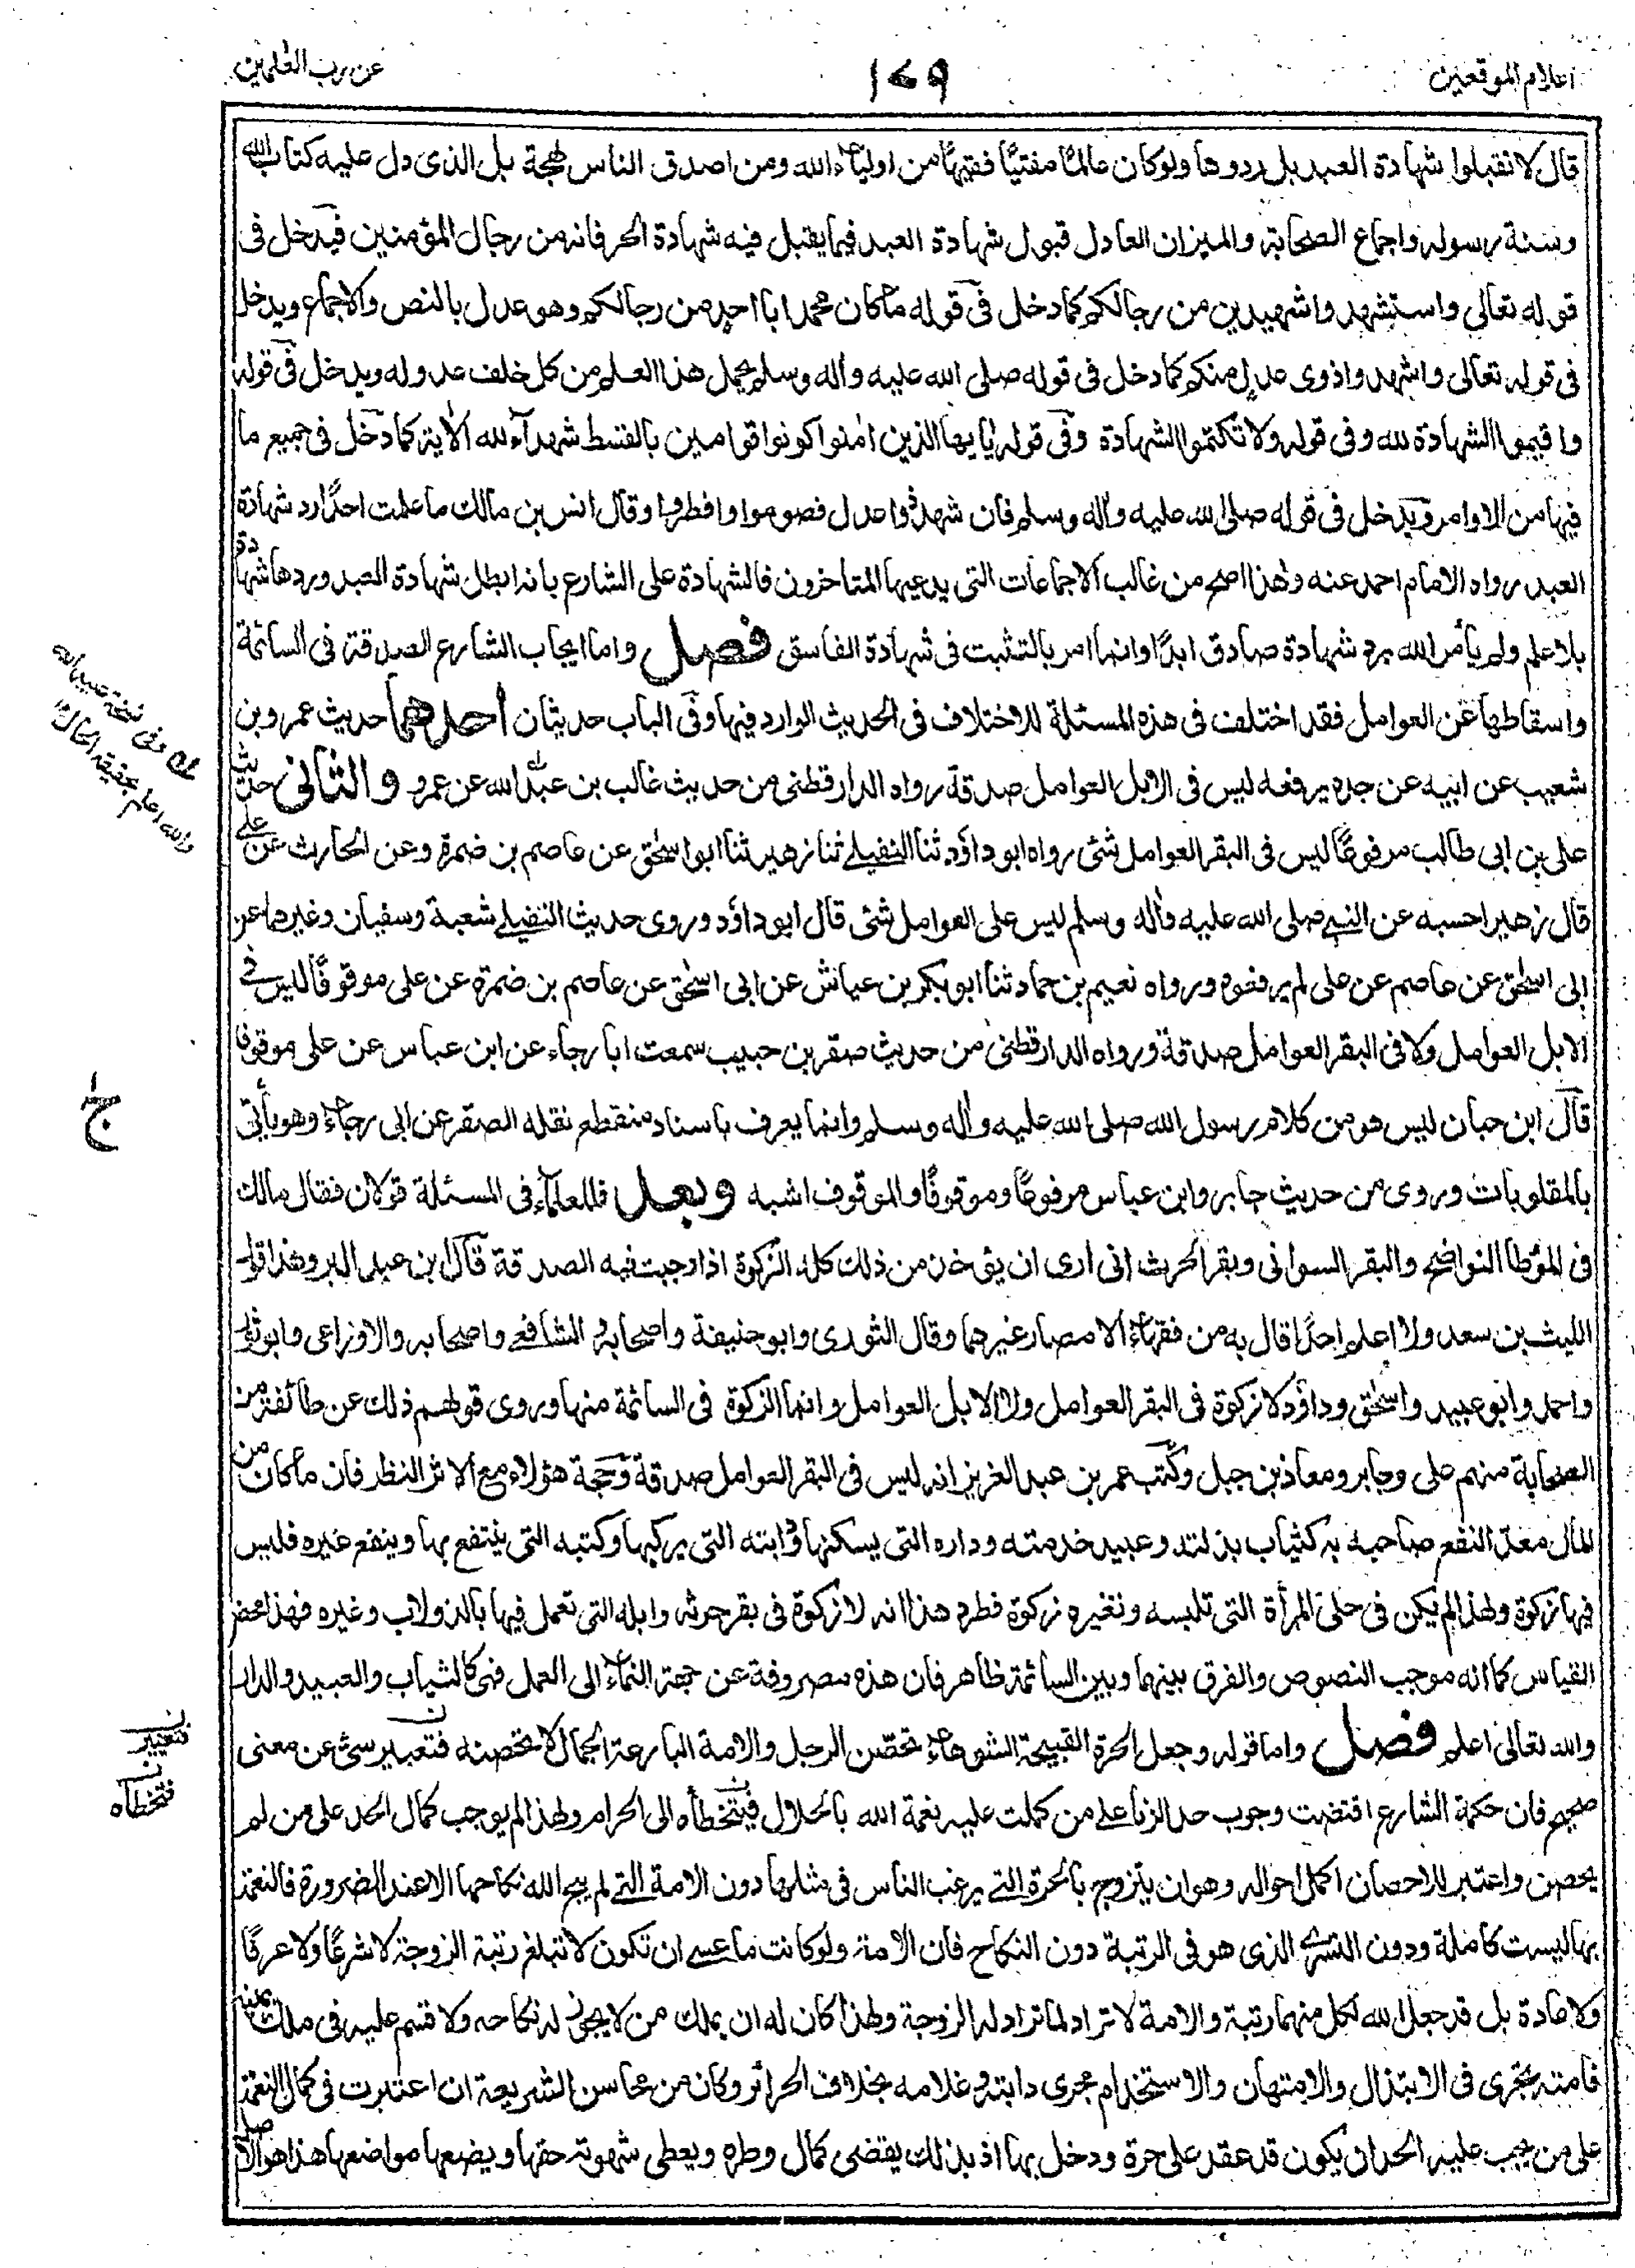 اعلام الموقعين
١٧٩
عن رب العٰلمين
قال لا تقبلوا شهادة العبد بل ردوها ولو كان عالمًا مفتيًا فقيهًا من اولياء الله ومن اصدق الناس لهجة بل الذى دل عليه كتاب الله
وسنة رسوله واجماع الصحابة والميزان العادل قبول شهادة العبد فيما يقبل فيه شهادة الحر فانه من رجال المؤمنين فيدخل فى
قوله تعالى واستشهدوا شهيدين من رجالكم كما دخل فى قوله ما كان محمد ابا احد من رجالكم وهو عدل بالنص والاجماع ويدخل
فى قوله تعالى واشهدوا ذوى عدل منكم كما دخل فى قوله صلى الله عليه واٰله وسلم يحمل هذا العلم من كل خلف عدوله ويدخل فى قوله
واقيموا الشهادة لله وفى قوله ولا تكتموا الشهادة وفى قوله يٰايها الذين اٰمنوا كونوا قوامين بالقسط شهدآء لله الاٰية كما دخل فى جميع ما
فيها من الاوامر ويدخل فى قوله صلى الله عليه واٰله وسلم فان شهد ذوا عدل فصوموا وافطروا وقال انس بن مالك ما علمت احدًا رد شهادة
العبد رواه الامام احمد عنه وهذا اصح من غالب الاجماعات التى يدعيها المتاخرون فالشهادة على الشارع بانه ابطل شهادة العبد وردها شهادة
بلا علم ولم يأمر الله برد شهادة صادق ابدًا وانما امر بالتثبت فى شهادة الفاسق فصل واما ايجاب الشارع الصدقة فى السائمة
واسقاطها عن العوامل فقد اختلف فى هذه المسئلة للاختلاف فى الحديث الوارد فيها وفى الباب حديثان احدهما حديث عمرو بن
شعيب عن ابيه عن جده يرفعه ليس فى الابل العوامل صدقة رواه الدارقطنى من حديث غالب بن عبد الله عن عمرو والثانى حديث
على بن ابى طالب مرفوعًا ليس فى البقر العوامل شئ رواه ابو داؤد ثنا النفيلے ثنا زهير ثنا ابو اسحٰق عن عاصم بن ضمرة وعن الحارث عن علے
قال زهير احسبه عن النبے صلى الله عليه واٰله وسلم ليس على العوامل شئ قال ابو داؤد وروى حديث النفيلے شعبة وسفيان وغيرهما عن
ابى اسحٰق عن عاصم عن على لم يرفعوه ورواه نعيم بن حماد ثنا ابو بكر بن عياش عن ابى اسحٰق عن عاصم بن ضمرة عن على موقوفًا ليس فے
الابل العوامل ولا فى البقر العوامل صدقة ورواه الدارقطنى من حديث صقر بن حبيب سمعت ابا رجاء عن ابن عباس عن على موقوفا
قال ابن حبان ليس هو من كلام رسول الله صلى الله عليه واٰله وسلم وانما يعرف باسناد منقطع نقله الصقر عن ابى رجاء وهو يأتى
بالمقلوبات وروى من حديث جابر وابن عباس مرفوعًا وموقوفًا والموقوف اشبه وبعد فللعلماء فى المسئلة قولان فقال مالك
فى المؤطا النواضح والبقر السوانى وبقر الحرث انى ارى ان يؤخذ من ذلك كله الزكوة اذا وجبت فيه الصدقة قال بن عبد البر وهذا قول
الليث بن سعد ولا اعلم احدًا قال به من فقهاء الامصار غيرهما وقال الثورى وابو حنيفة واصحابه والشافعے واصحابه والاوزاعى وابو ثور
واحمد وابو عبيد واسحٰق وداؤد لا زكوة فى البقر العوامل ولا الابل العوامل وانما الزكوة فى السائمة منها وروى قولهم ذلك عن طائفة من
الصحابة منهم على وجابر ومعاذ بن جبل وكتب عمر بن عبد العزيز انه ليس فى البقر العوامل صدقة وحجة هؤلاء مع الاثر النظر فان ما كان من
المال معدّ النفع صاحبه به كثياب بذلته وعبيد خدمته وداره التى يسكنها ودابته التى يركبها وكتبه التى ينتفع بها وينفع غيره فليس
فيها زكوة ولهذا لم يكن فى حلى المرأة التى تلبسه وتغيره زكوة فطرد هذا انه لا زكوة فى بقر حرثه وابله التى تعمل فيها بالدولاب وغيره فهذا محض
القياس كما انه موجب النصوص والفرق بينهما وبين السائمة ظاهر فان هذه مصروفة عن جهة النماء الى العمل فهى كالثياب والعبيد والدار
والله تعالى اعلم فصل واما قوله وجعل الحرة القبيحة الشوهاء تحصن الرجل والامة البارعة الجمال لا تحصنه فتعبير سئ عن معنى
صحيح فان حكمة الشارع اقتضت وجوب حد الزنا على من كملت عليه نعمة الله بالحلال فيتخطأه الى الحرام ولهذا لم يوجب كمال الحد على من لم
يحصن واعتبر للاحصان اكمل احواله وهو ان يتزوج بالحرة التے يرغب الناس فى مثلها دون الامة التے لم يبح الله نكاحها الا عند الضرورة فالنعمة
بها ليست كاملة ودون التسرے الذى هو فى الرتبة دون النكاح فان الامة ولو كانت ما عسے ان تكون لا تبلغ رتبة الزوجة لا شرعًا ولا عرفًا
ولا عادة بل قد جعل الله لكل منهما رتبة والامة لا تراد لما تراد له الزوجة ولهذا كان له ان يملك من لا يجوز له نكاحه ولا قسم عليه فى ملك يمينه
فامته تجرى فى الابتذال والامتهان والاستخدام مجرى دابته وغلامه بخلاف الحرائر وكان من محاسن الشريعة ان اعتبرت فى كمال النعمة
على من يجب عليه الحد ان يكون قد عقد على حرة ودخل بها اذ بذلك يقضى كمال وطره ويعطى شهوته حقها ويضعها مواضعها هذا هو الاصل
وفى نسخة عبيد الله
والله اعلم بحقيقة الحال
ج
فتعبير
فتخطاه